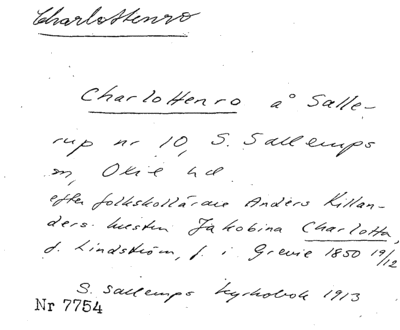 Charlottenro
Charlottenro å Salle-
rup nr 10, S. Sallerups
sn, Oxie hd.
efter folkskollärare Anders Killan-
ders hustru Jakobina Charlotta,
f. Lindström, f. i Grevie 1850 19/12
S. Sallerups kyrkobok 1913
Nr 7754